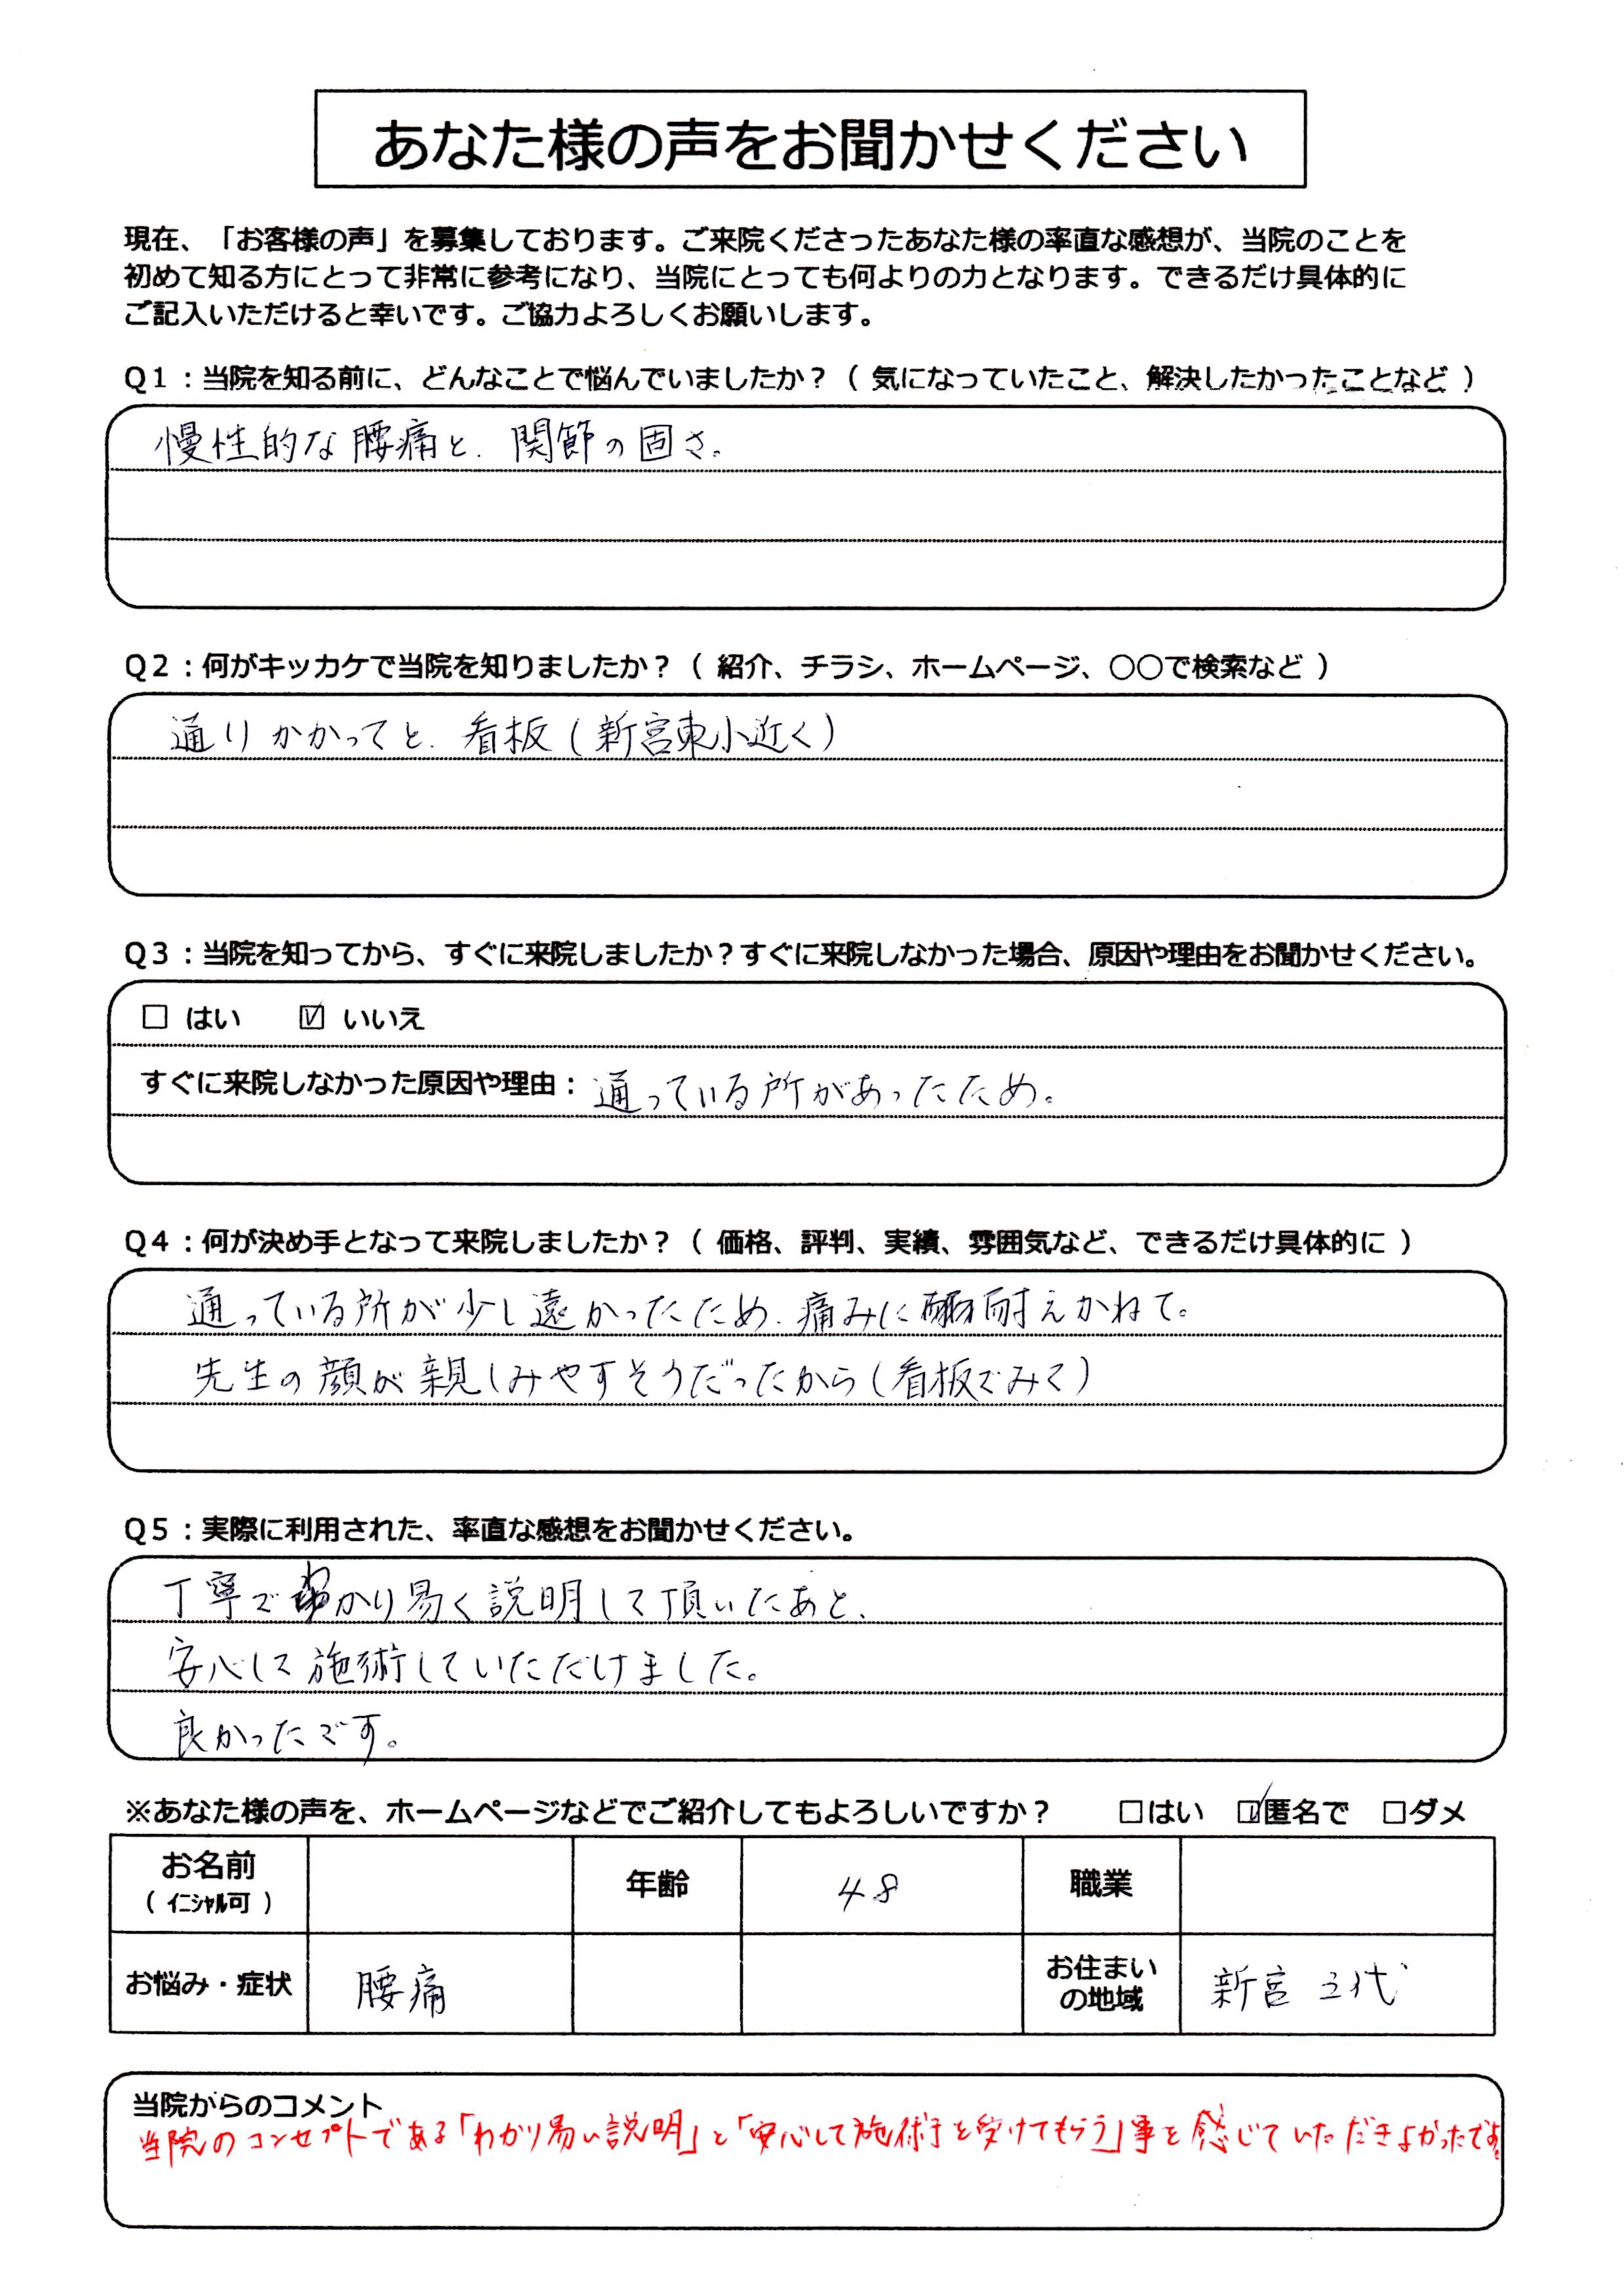 あなた様の声をお聞かせください
現在、「お客様の声」を募集しております。ご来院くださったあなた様の率直な感想が、当院のことを
初めて知る方にとって非常に参考になり、当院にとっても何よりの力となります。できるだけ具体的に
ご記入いただけると幸いです。ご協力よろしくお願いします。
Q1：当院を知る前に、どんなことで悩んでいましたか？（ 気になっていたこと、解決したかったことなど ）
慢性的な腰痛と、関節の固さ。
Q2：何がキッカケで当院を知りましたか？（ 紹介、チラシ、ホームページ、○○で検索など ）
通りかかってと、看板（新宮東小近く）
Q3：当院を知ってから、すぐに来院しましたか？すぐに来院しなかった場合、原因や理由をお聞かせください。
□ はい ☑ いいえ
すぐに来院しなかった原因や理由： 通っている所があったため。
Q4：何が決め手となって来院しましたか？（ 価格、評判、実績、雰囲気など、できるだけ具体的に ）
通っている所が少し遠かったため、痛みに耐えかねて。
先生の顔が親しみやすそうだったから（看板でみて）
Q5：実際に利用された、率直な感想をお聞かせください。
丁寧でわかり易く説明して頂いたあと、
安心して施術していただけました。
良かったです。
※あなた様の声を、ホームページなどでご紹介してもよろしいですか？ □はい ☑匿名で □ダメ
お名前 年齢 48 職業
（ イニシャル可 ）
お悩み・症状 腰痛 お住まいの地域 新宮 三代
当院からのコメント
当院のコンセプトである「わかり易い説明」と「安心して施術を受けてもらう」事を感じていただきよかったです。